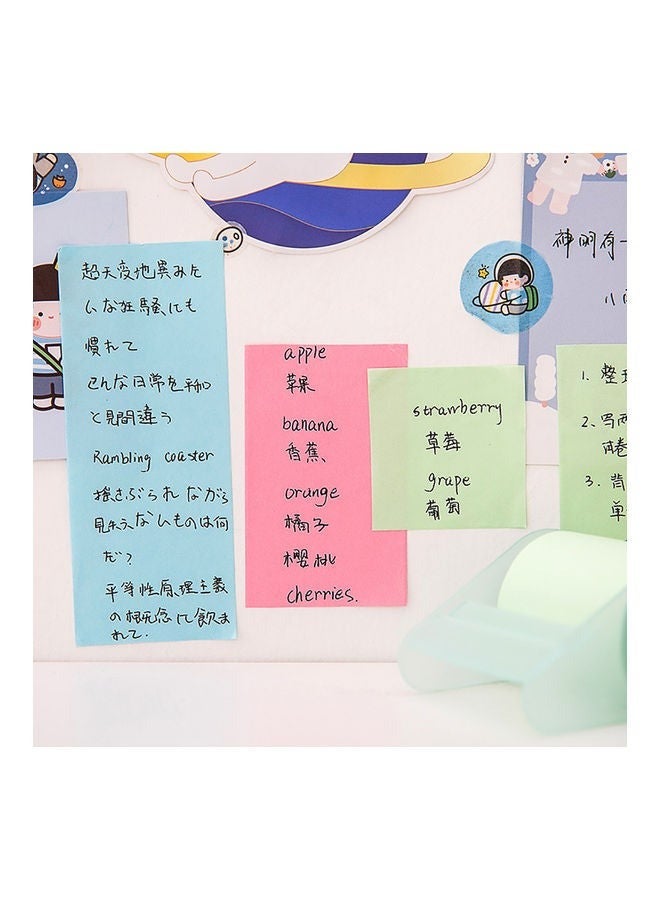 超天変地異みた
いな狂騒にも
慣れて
こんな日常を平和
と見間違う
Rambling coaster
揺さぶられながら
見失わないものは何
だ？
平等性原理主義
の概念に飲ま
れて.
apple
苹果
banana
香蕉
orange
橘子
樱桃
cherries.
strawberry
草莓
grape
葡萄
神明有一
1. 整
2、写两
卷
3. 背
单